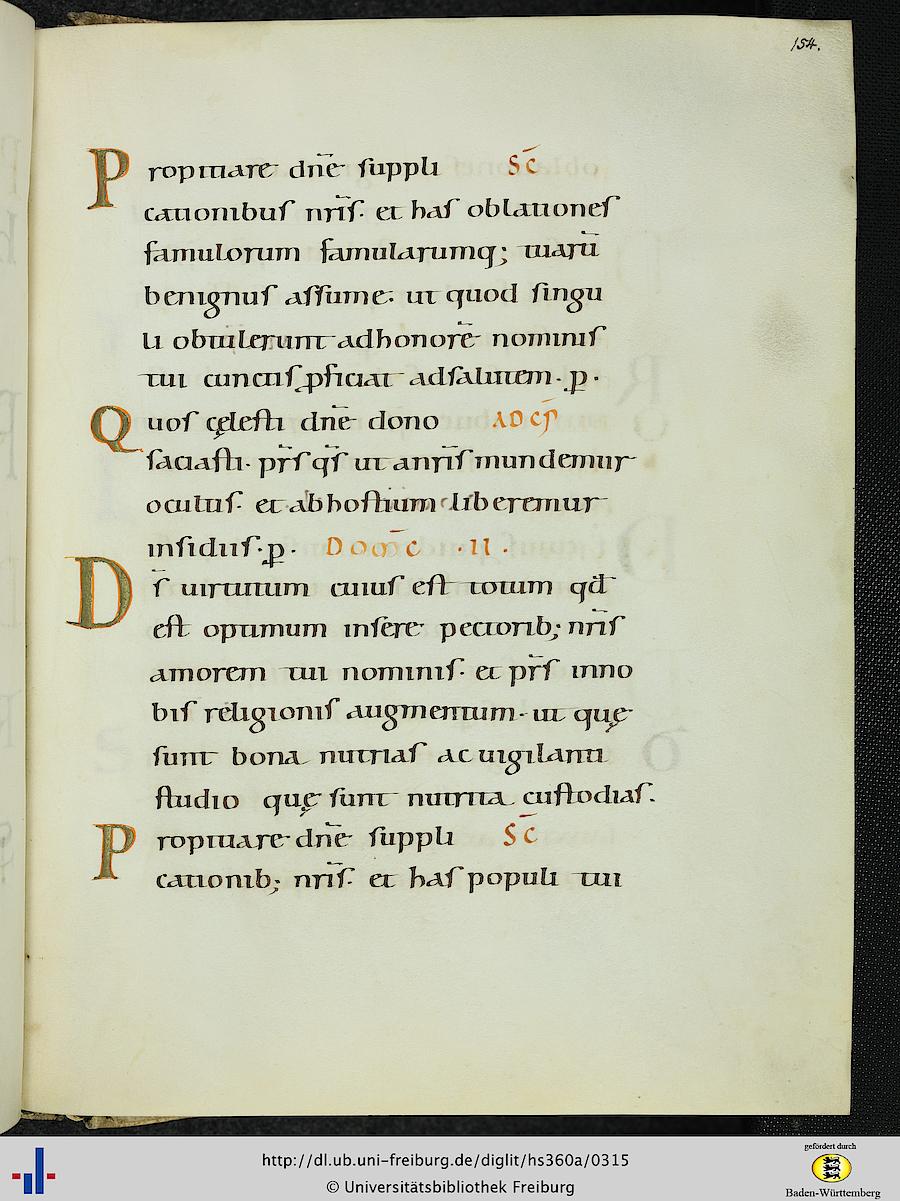 154.
Propitiare dn̄e suppli SC̄
cationibus nr̄is· et has oblationes
famulorum famularumq; tuarū
benignus assume· ut quod singu
li obtulerunt adhonorē nominis
tui cunctis ꝓficiat adsalutem· p̱·
Quos cęlesti dn̄e dono AD CP̄
saciasti· pr̄s qs̄ ut anr̄is mundemur
ocultis· et abhostium liberemur
insidiis· p̱· DOM̄C ·II·
Ds̄ uirtutum cuius est totum qđ
est optimum insere pectorib; nr̄is
amorem tui nominis· et pr̄s inno
bis religionis augmentum· ut quę
sunt bona nutrias ac uigilanti
studio quę sunt nutrita custodias.
Propitiare dn̄e suppli SC̄
cationib; nr̄is· et has populi tui
http://dl.ub.uni-freiburg.de/diglit/hs360a/0315
© Universitätsbibliothek Freiburg
gefördert durch
Baden-Württemberg